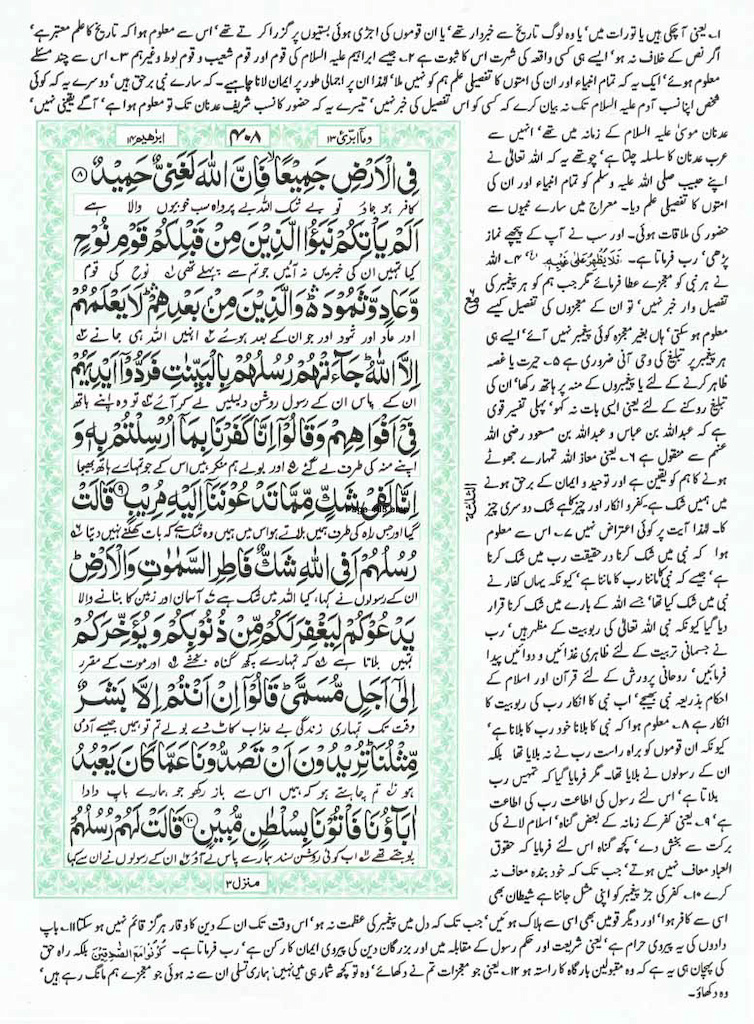 ۱۔ یعنی آچکی ہیں یا تورات میں' یا وہ لوگ تاریخ سے خبردار تھے' یا ان قوموں کی اجڑی ہوئی بستیوں پر گزرا کرتے تھے' اس سے معلوم ہوا کہ تاریخ کا علم معتبر ہے'
اگر نص کے خلاف نہ ہو' ایسے ہی کسی واقعہ کی شہرت اس کا ثبوت ہے ۲۔ جیسے ابراہیم علیہ السلام کی قوم اور قوم شعیب و قوم لوط وغیرہم ۳۔ اس سے چند مسئلے
معلوم ہوئے' ایک یہ کہ تمام انبیاء اور ان کی امتوں کا تفصیلی علم ہم کو نہیں ملا' لہذا ان پر اجمالی طور پر ایمان لانا چاہیے۔ کہ سارے نبی برحق ہیں' دوسرے یہ کہ کوئی
شخص اپنا نسب آدم علیہ السلام تک نہ بیان کرے کہ کسی کو اس تفصیل کی خبر نہیں' تیسرے یہ کہ حضور کا نسب شریف عدنان تک تو معلوم ہوا ہے' آگے یقینی نہیں'
عدنان موسیٰ علیہ السلام کے زمانہ میں تھے' انہیں سے
عرب عدنان کا سلسلہ چلتا ہے' چوتھے یہ کہ اللہ تعالیٰ نے
اپنے حبیب صلی اللہ علیہ وسلم کو تمام انبیاء اور ان کی
امتوں کا تفصیلی علم دیا۔ معراج میں سارے نبیوں سے
حضور کی ملاقات ہوئی۔ اور سب نے آپ کے پیچھے نماز
پڑھی' رب فرماتا ہے۔ فَلَا يُظْهِرُ عَلٰى غَيْبِهٖ ۴۔ اللہ
نے ہر نبی کو معجزے عطا فرمائے مگر جب ہم کو ہر پیغمبر کی
تفصیل وار خبر نہیں' تو ان کے معجزوں کی تفصیل کیسے
معلوم ہو سکتی' ہاں بغیر معجزہ کوئی پیغمبر نہیں آئے' ایسے ہی
ہر پیغمبر پر تبلیغ کی وحی آنی ضروری ہے ۵۔ حیرت یا غصہ
ظاہر کرنے کے لئے یا پیغمبروں کے منہ پر ہاتھ رکھا' ان کی
تبلیغ روکنے کے لئے یعنی ایسی بات نہ کہو' پہلی تفسیر قوی
ہے کہ عبداللہ بن عباس و عبداللہ بن مسعود رضی اللہ
عنہم سے منقول ہے ۶۔ یعنی معاذ اللہ تمہارے جھوٹے
ہونے کا ہم کو یقین ہے اور توحید و ایمان کے برحق ہونے
میں ہمیں شک ہے۔ کفر و انکار اور چیز کا ہے شک دوسری چیز
کا۔ لہذا آیت پر کوئی اعتراض نہیں ۷۔ اس سے معلوم
ہوا کہ نبی میں شک کرنا در حقیقت رب میں شک کرنا
ہے' جیسے کہ نبی کا ماننا رب کا ماننا ہے' کیونکہ یہاں کفار نے
نبی میں شک کیا تھا' جسے اللہ کے بارے میں شک کرنا قرار
دیا گیا کیونکہ نبی اللہ تعالیٰ کی ربوبیت کے مظہر ہیں' رب
نے جسمانی تربیت کے لئے ظاہری غذائیں و دوائیں پیدا
فرمائیں' روحانی پرورش کے لئے قرآن اور اسلام کے
احکام بذریعہ نبی بھیجے' اب نبی کا انکار رب کی ربوبیت کا
انکار ہے ۸۔ معلوم ہوا کہ نبی کا بلانا خود رب کا بلانا ہے'
کیونکہ ان قوموں کو براہ راست رب نے نہ بلایا تھا بلکہ
ان کے رسولوں نے بلایا تھا۔ مگر فرمایا گیا کہ تمہیں رب
بلاتا ہے' اس لئے رسول کی اطاعت رب کی اطاعت
ہے ۹۔ یعنی کفر کے زمانہ کے بعض گناہ' اسلام لانے کی
برکت سے بخش دے' کچھ گناہ اس لئے فرمایا کہ حقوق
العباد معاف نہیں ہوتے' جب تک کہ خود بندہ معاف نہ
کرے ۱۰۔ کفر کی جڑ پیغمبر کو اپنی مثل جاننا ہے شیطان بھی
ابرٰهيم ۱۴
۴۰۸
وما ابرئ ۱۳
فِي الْاَرْضِ جَمِيْعًا ۙ فَاِنَّ اللّٰهَ لَغَنِيٌّ حَمِيْدٌ ۸
کافر ہو جاؤ تو بے شک اللہ بے پرواہ سب خوبیوں والا ہے
اَلَمْ يَاْتِكُمْ نَبَؤُا الَّذِيْنَ مِنْ قَبْلِكُمْ قَوْمِ نُوْحٍ
کیا تمہیں ان کی خبریں نہ آئیں جو تم سے پہلے تھی ۱ نوح کی قوم
وَّعَادٍ وَّثَمُوْدَ ۛ وَالَّذِيْنَ مِنْۢ بَعْدِهِمْ ۛ لَا يَعْلَمُهُمْ
اور عاد اور ثمود اور جو ان کے بعد ہوئے ۲ انہیں اللہ ہی جانے ۳
اِلَّا اللّٰهُ ۭ جَآءَتْهُمْ رُسُلُهُمْ بِالْبَيِّنٰتِ فَرَدُّوْٓا اَيْدِيَهُمْ
ان کے پاس ان کے رسول روشن دلیلیں لے کر آئے ۴ تو وہ اپنے ہاتھ
فِيْٓ اَفْوَاهِهِمْ وَقَالُوْٓا اِنَّا كَفَرْنَا بِمَآ اُرْسِلْتُمْ بِهٖ وَ
اپنے منہ کی طرف لے گئے ۵ اور بولے ہم منکر ہیں اس کے جو تمہارے ہاتھ بھیجا
اِنَّا لَفِيْ شَكٍّ مِّمَّا تَدْعُوْنَنَآ اِلَيْهِ مُرِيْبٍ ۹ قَالَتْ
گیا اور جس راہ کی طرف ہمیں بلاتے ہو اس میں ہمیں وہ شک ہے کہ بات کھلنے نہیں دیتا ۶
رُسُلُهُمْ اَفِي اللّٰهِ شَكٌّ فَاطِرِ السَّمٰوٰتِ وَالْاَرْضِ ۭ
ان کے رسولوں نے کہا، کیا اللہ میں شک ہے ۷ آسمان اور زمین کا بنانے والا
يَدْعُوْكُمْ لِيَغْفِرَ لَكُمْ مِّنْ ذُنُوْبِكُمْ وَيُؤَخِّرَكُمْ
تمہیں بلاتا ہے ۸ کہ تمہارے کچھ گناہ بخشے ۹ اور موت کے مقرر
اِلٰٓى اَجَلٍ مُّسَمًّى ۭ قَالُوْٓا اِنْ اَنْتُمْ اِلَّا بَشَرٌ
وقت تک تمہاری زندگی بے عذاب کاٹ دے بولے تم تو ہمیں جیسے آدمی
مِّثْلُنَا ۭ تُرِيْدُوْنَ اَنْ تَصُدُّوْنَا عَمَّا كَانَ يَعْبُدُ
ہو ۱۰ تم چاہتے ہو کہ ہمیں اس سے باز رکھو جو ہمارے باپ دادا
اٰبَآؤُنَا فَاْتُوْنَا بِسُلْطٰنٍ مُّبِيْنٍ ۱۰ قَالَتْ لَهُمْ رُسُلُهُمْ
پوجتے تھے ۱۱ اب کوئی روشن سند ہمارے پاس لے آؤ ۱۲ ان کے رسولوں نے ان سے کہا
منزل ۳
ع
الثلثة
اسی سے کافر ہوا' اور دیگر قومیں بھی اسی سے ہلاک ہوئیں' جب تک کہ دل میں پیغمبر کی عظمت نہ ہو' اس وقت تک ان کے دین کا وقار ہرگز قائم نہیں ہو سکتا ۱۱۔ باپ
دادوں کی یہ پیروی حرام ہے' یعنی شریعت اور حکم رسول کے مقابلہ میں اور بزرگان دین کی پیروی ایمان کا رکن ہے' رب فرماتا ہے۔ كُوْنُوْا مَعَ الصّٰدِقِيْنَ بلکہ راہ حق
کی پہچان ہی یہ ہے کہ وہ مقبولین بارگاہ کا راستہ ہو ۱۲۔ یعنی جو معجزات تم نے دکھائے' وہ تو کچھ شمار ہی میں نہیں' ہماری تسلی ان سے نہ ہوئی جو معجزے ہم مانگ رہے ہیں'
وہ دکھاؤ۔